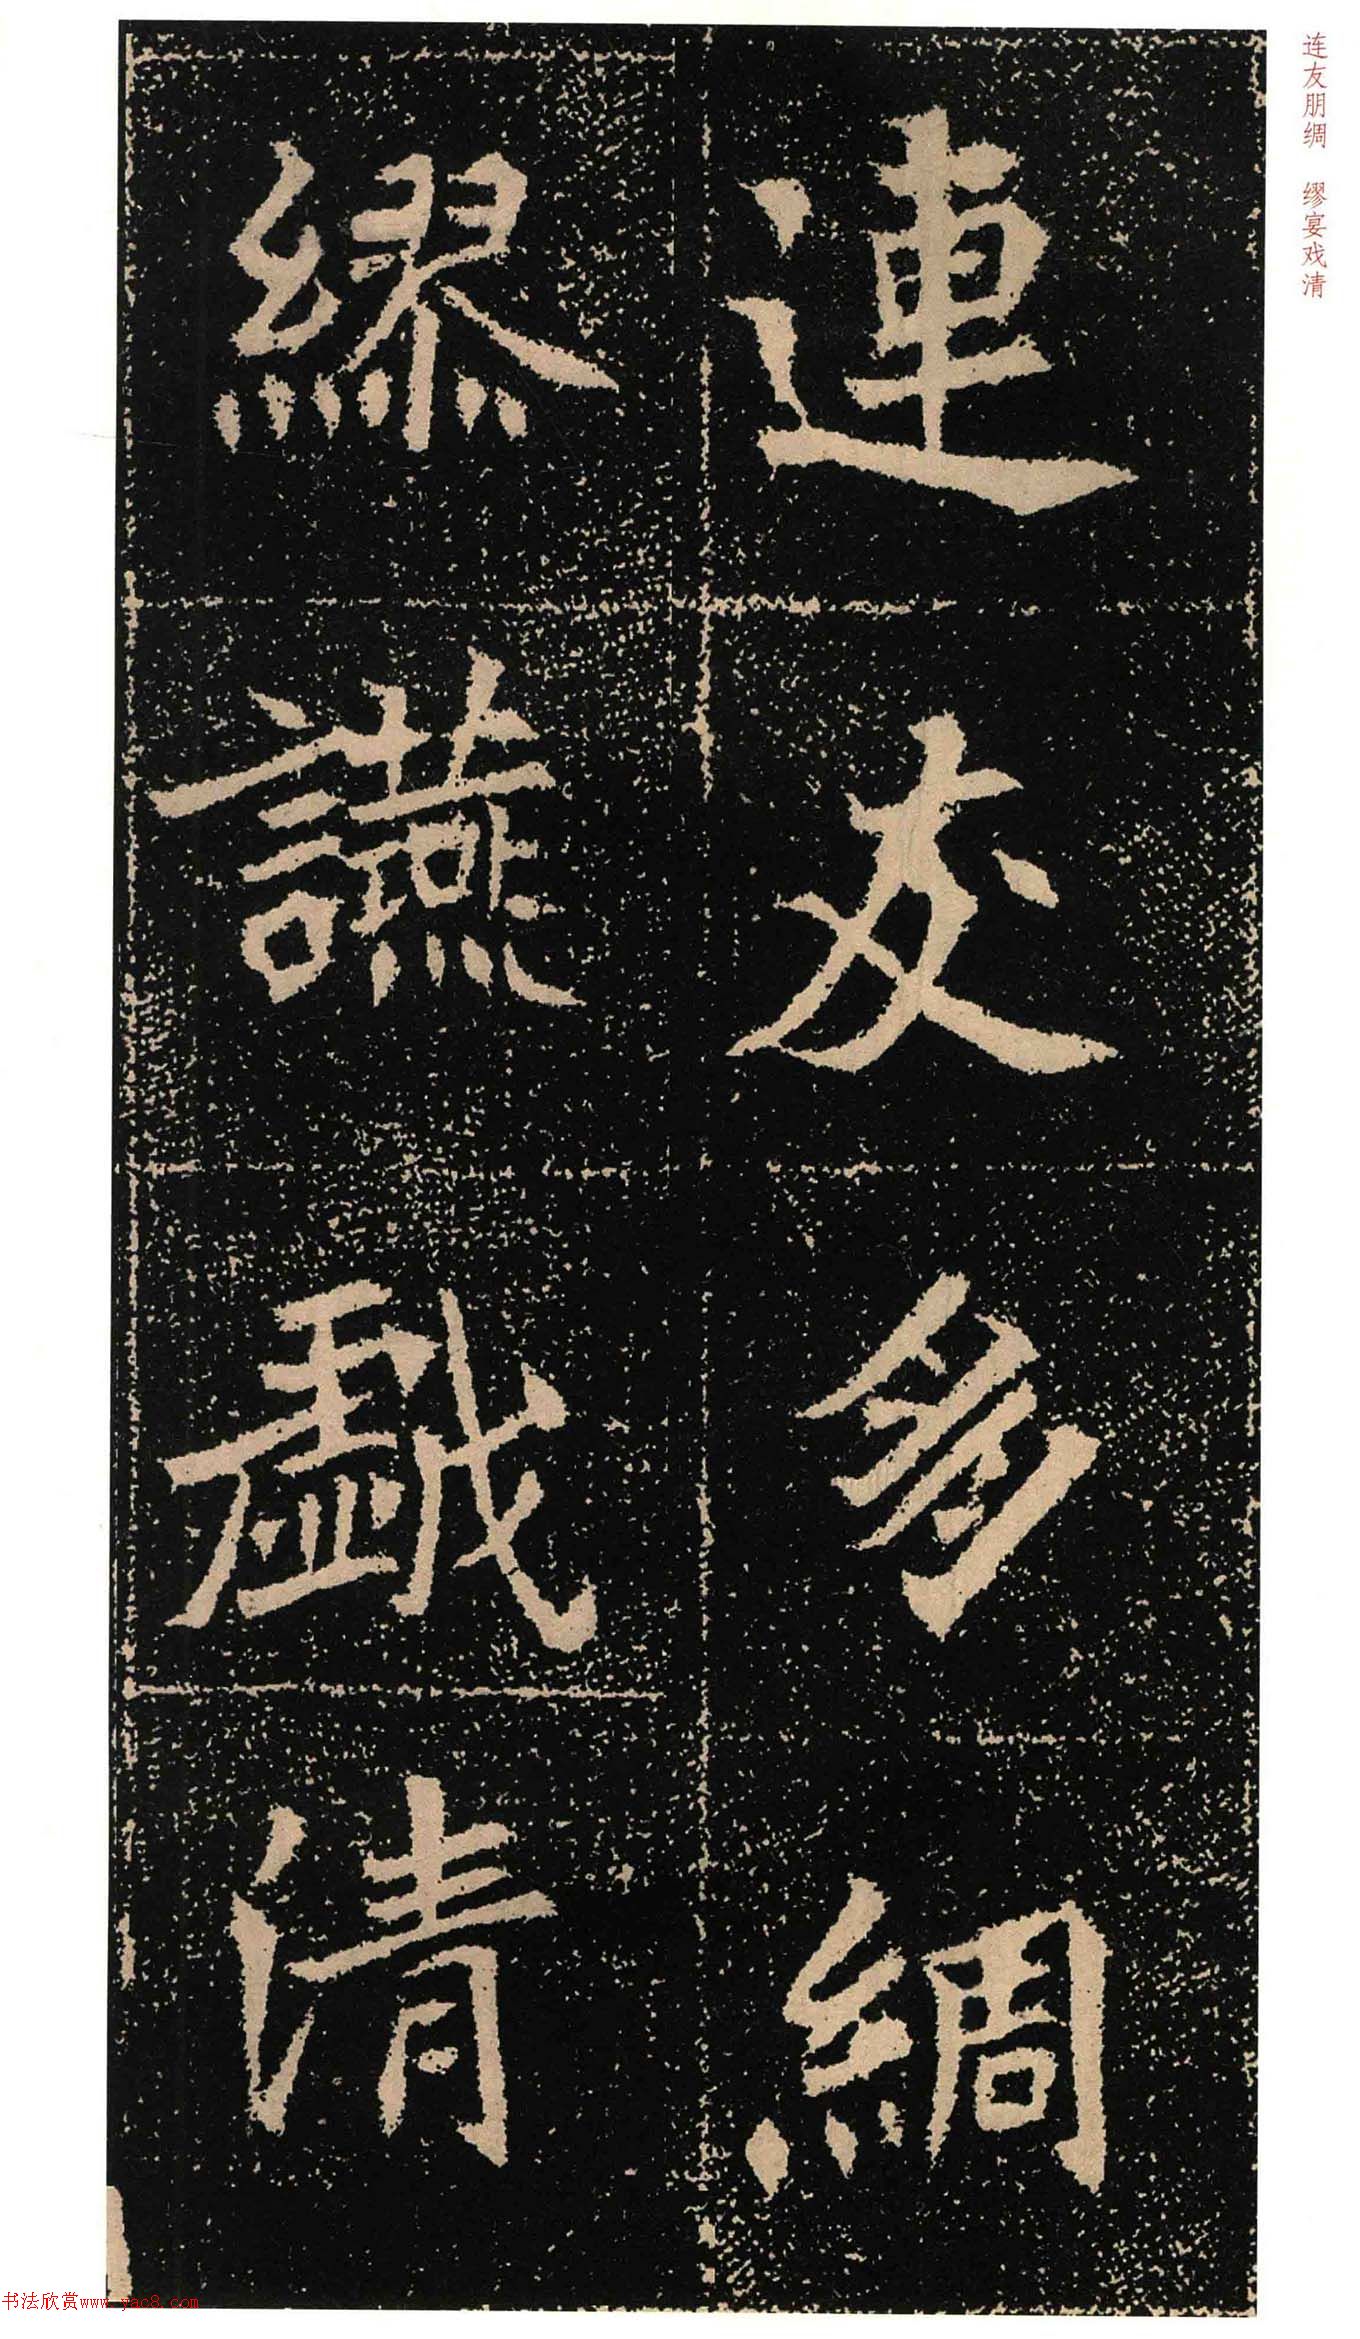 连友朋绸 缪宴戏清
連友朋綢
繆讌戲清
书法欣赏www.yac8.com